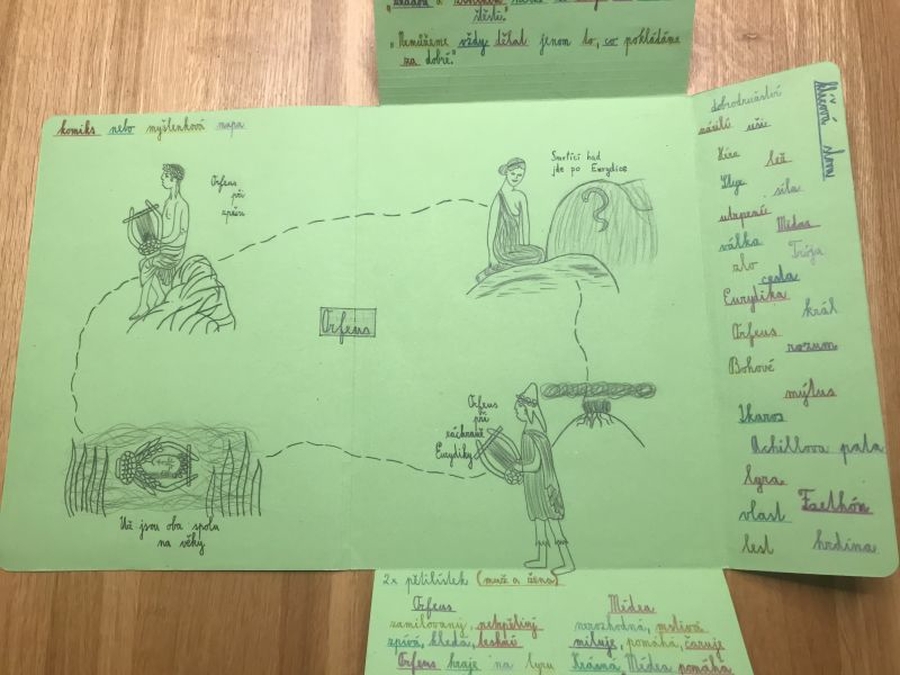 štěstí."
„Nemůžeme vždy dělat jenom to, co pokládáme
za dobré."
komiks nebo myšlenková mapa
Orfeus
při
zpěvu
Smrtící had
jde po Eurydice
?
Orfeus
Orfeus
při
záchraně
Eurydiky
Už jsou oba spolu
na věky
klíčová slova
dobrodružství
násilí uši
Héra lež
Styx síla
utrpení Médea
válka Trója
zlo cesta
Eurydika král
Orfeus rozum
Bohové mýtus
Ikaros
Achillova pata
lyra
vlast Faethón
lest hrdina
2x pětilístek (muž a žena)
Orfeus Médea
zamilovaný, netrpělivý nerozhodná, mstivá
zpívá, hledá, miluje, pomáhá, čaruje
Orfeus hraje na lyru Krásná Médea pomáhá